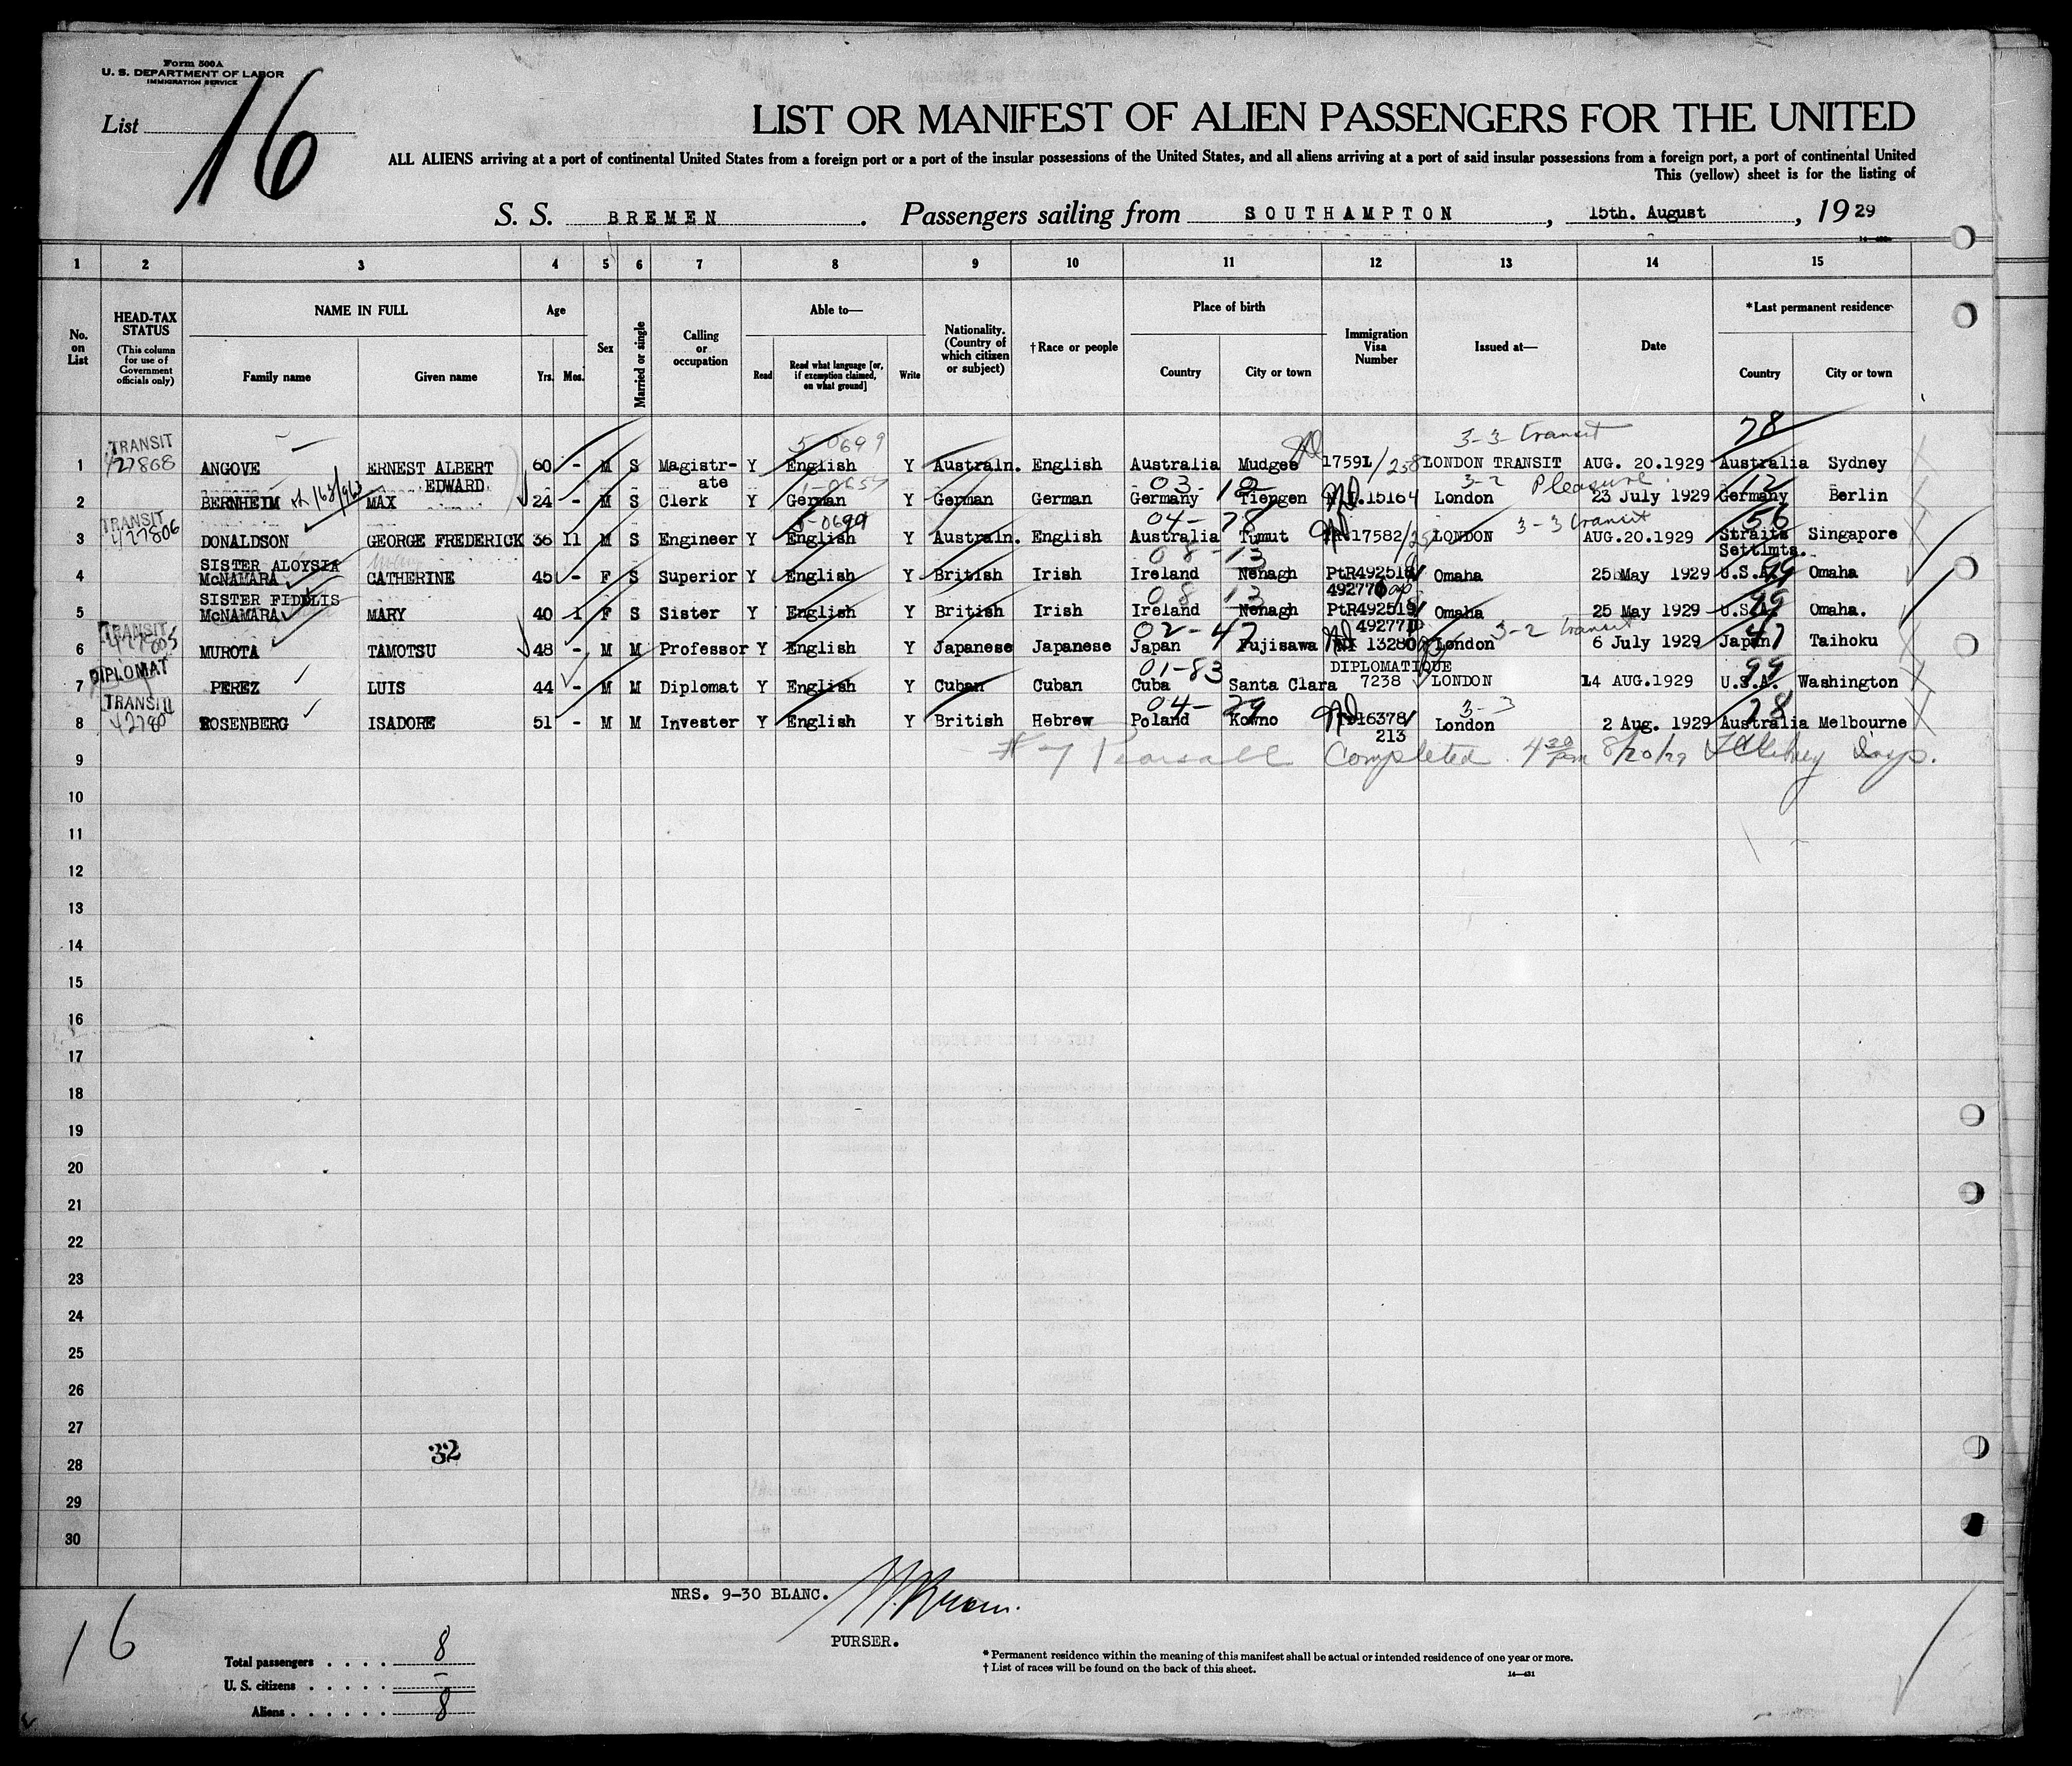 Form 500A
U. S. DEPARTMENT OF LABOR
IMMIGRATION SERVICE
List 16
LIST OR MANIFEST OF ALIEN PASSENGERS FOR THE UNITED
ALL ALIENS arriving at a port of continental United States from a foreign port or a port of the insular possessions of the United States, and all aliens arriving at a port of said insular possessions from a foreign port, a port of continental United
This (yellow) sheet is for the listing of
S. S. BREMEN. Passengers sailing from SOUTHAMPTON, 15th. August, 1929
1 2 3 4 5 6 7 8 9 10 11 12 13 14 15
No. on List
HEAD-TAX STATUS
(This column for use of Government officials only)
NAME IN FULL
Family name
Given name
Age
Yrs. Mos.
Sex
Married or single
Calling or occupation
Able to—
Read
Read what language [or, if exemption claimed, on what ground]
Write
Nationality. (Country of which citizen or subject)
†Race or people
Place of birth
Country
City or town
Immigration Visa Number
Issued at—
Date
*Last permanent residence
Country
City or town
5-0699 3-3 transit 28
1 TRANSIT 427868 ANGOVE ERNEST ALBERT EDWARD 60 - M S Magistr-ate Y English Y Australn. English Australia Mudgee 17591/258 LONDON TRANSIT AUG. 20.1929 Australia Sydney
03-12 3-2 Pleasure 12
2 BERNHEIM MAX 24 - M S Clerk Y German Y German German Germany Tiengen 15164 London 23 July 1929 Germany Berlin
5-0699 04-78 3-3 transit 56
3 TRANSIT 427806 DONALDSON GEORGE FREDERICK 36 11 M S Engineer Y English Y Australn. English Australia Tumut 17582 LONDON AUG.20.1929 Straits Settlmts. Singapore
SISTER ALOYSIA 08-13 99
4 McNAMARA CATHERINE 45 - F S Superior Y English Y British Irish Ireland Nenagh PtR492518 Omaha 25 May 1929 U.S.A. Omaha
492770
SISTER FIDELIS 08 13 99
5 McNAMARA MARY 40 1 F S Sister Y English Y British Irish Ireland Nenagh PtR492519 Omaha 25 May 1929 U.S.A. Omaha.
492771
02-47 3-2 transit 47
6 TRANSIT 427805 MUROTA TAMOTSU 48 - M M Professor Y English Y Japanese Japanese Japan Fujisawa 13280 London 6 July 1929 Japan Taihoku
01-83 DIPLOMATIQUE 99
7 DIPLOMAT PEREZ LUIS 44 - M M Diplomat Y English Y Cuban Cuban Cuba Santa Clara 7238 LONDON 14 AUG.1929 U.S.A. Washington
04-29 3-3 28
8 TRANSIT ROSENBERG ISADORE 51 - M M Invester Y English Y British Hebrew Poland Kowno 16378 London 2 Aug. 1929 Australia Melbourne
213
9 #7 Pearsall Completed 4 30 pm 8/20/29
10
11
12
13
14
15
16
17
18
19
20
21
22
23
24
25
26
27
28
29
30
32
NRS. 9-30 BLANC.
PURSER.
16
Total passengers . . . . 8
U. S. citizens . . . . . -
Aliens . . . . . . 8
* Permanent residence within the meaning of this manifest shall be actual or intended residence of one year or more.
† List of races will be found on the back of this sheet.
14—431